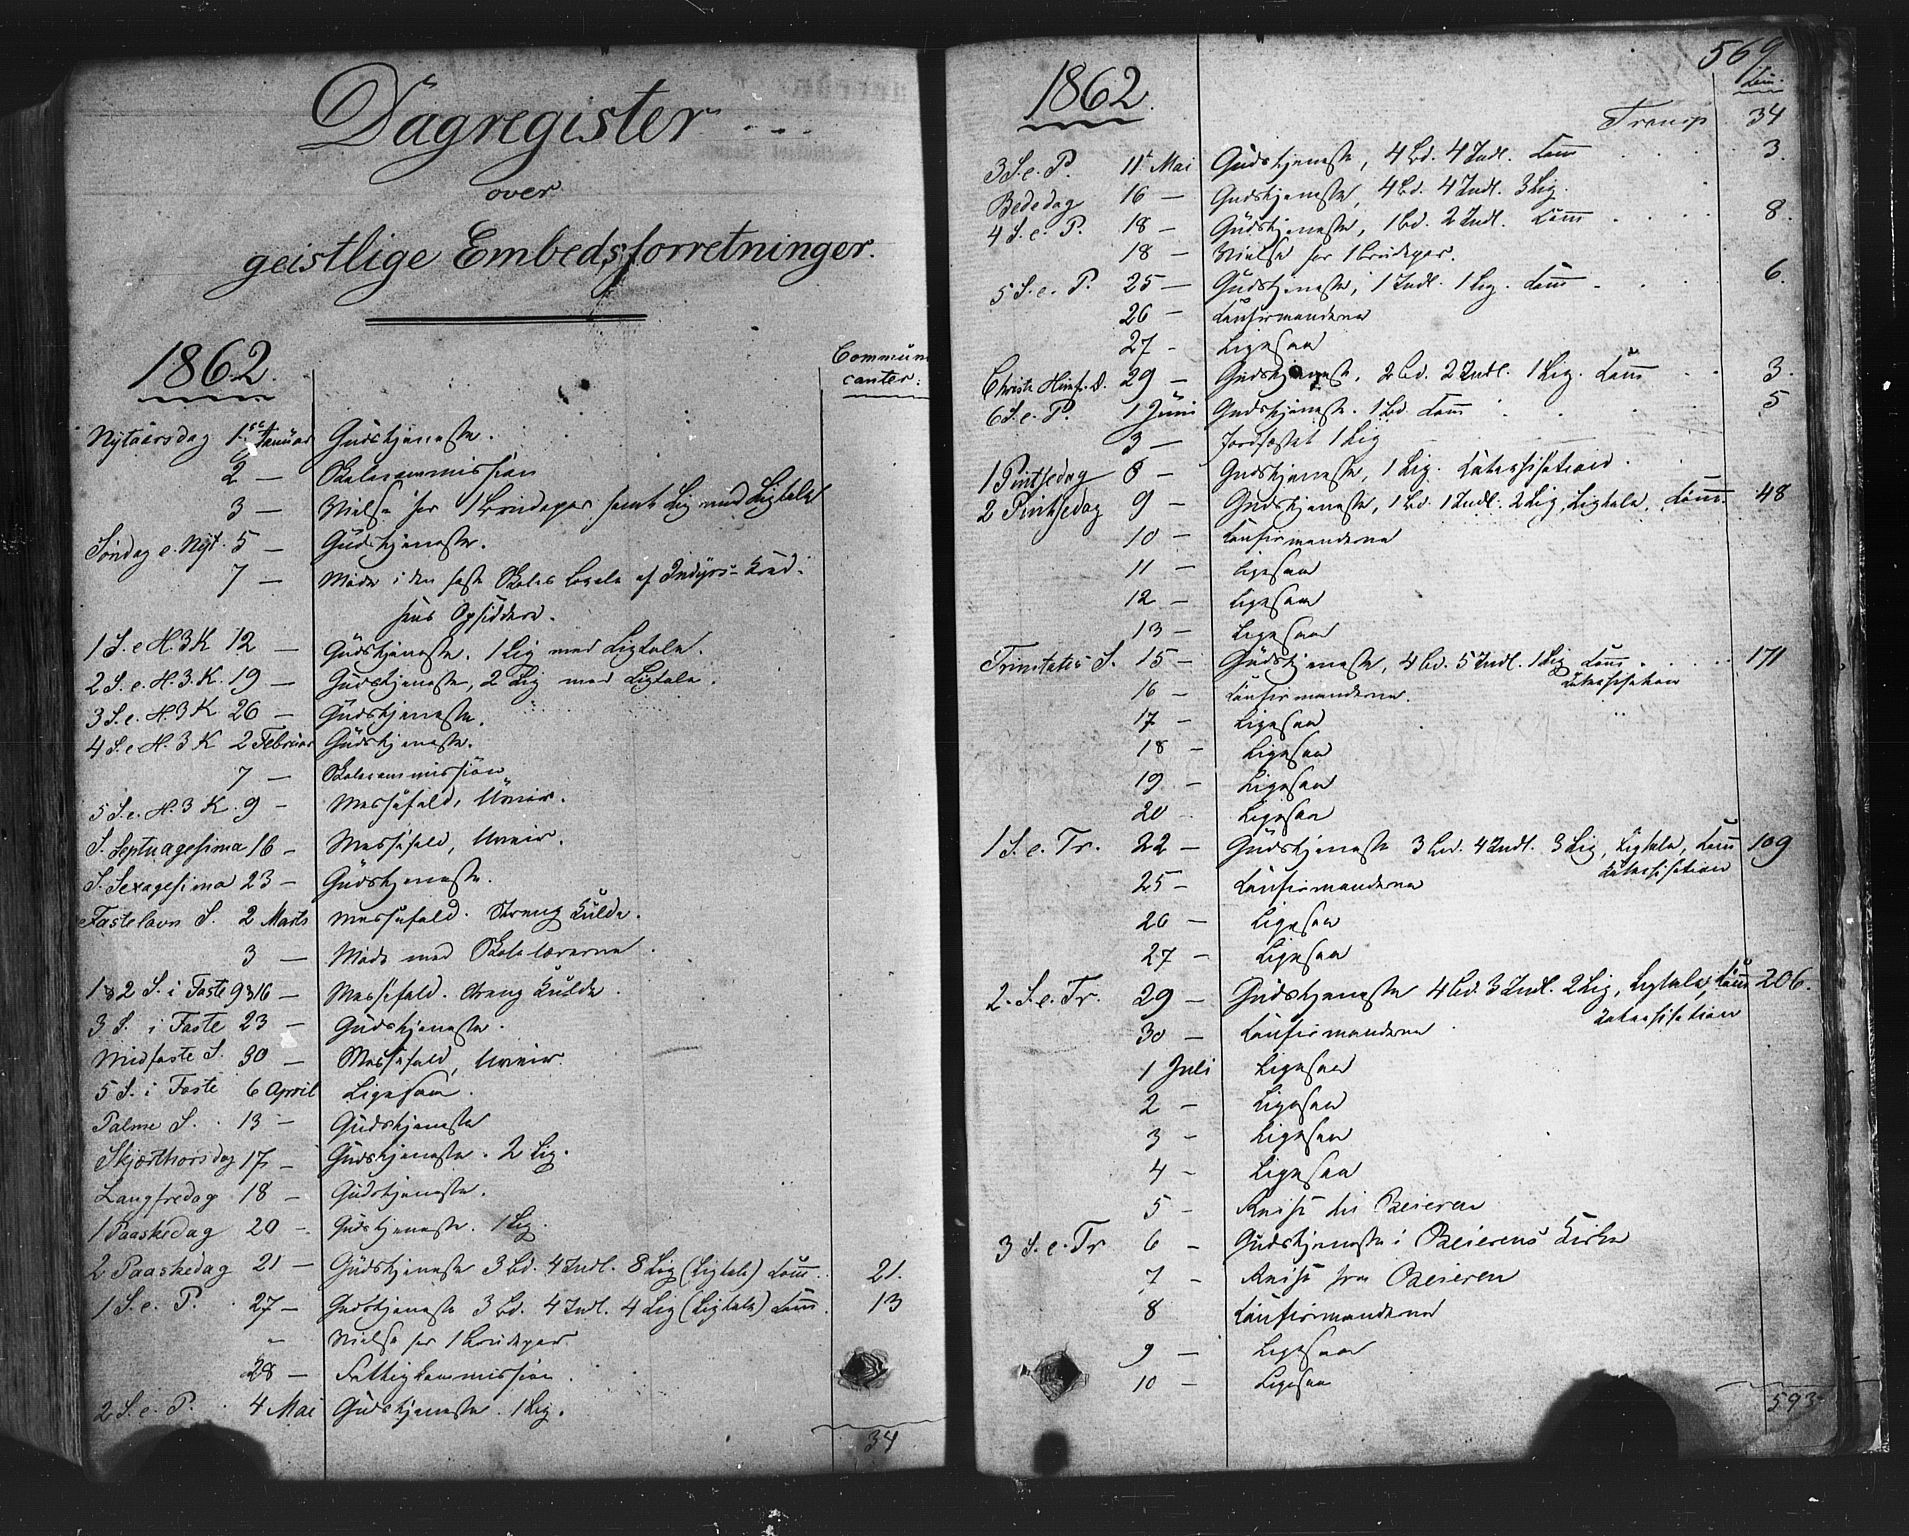 Dagregister
over
geistlige Embedsforretninger.
1862.
Communi
canter:
Nytaarsdag 1ste Januar Gudstjeneste.
2 — Skolecommission
3 — Vielse for 1 Brudepar samt Lig med Ligtale
Søndag e. Nyt. 5 — Gudstjeneste.
7 — Møde i den faste Skoles Locale af Indyrs-Kred-
sens Opsiddere.
1 S. e H. 3 K 12 — Gudstjeneste. 1 Lig med Ligtale.
2 S. e. H. 3. K. 19 — Gudstjeneste, 2 Lig med Ligtale.
3 S. e. H. 3 K 26 — Gudstjeneste.
4 S. e H. 3 K 2 Februar Gudstjeneste.
7 — Skolecommission
5 S. e. H. 3 K. 9 — Messefald, Uveir.
S. Septuagesima 16 — Messefald, Uveir.
S. Sexagesima 23 — Gudstjeneste.
Fastelavn S. 2 Marts Messefald. Streng Kulde.
3 — Møde med Skolelærerne.
1 & 2 S. i Faste 9 & 16 — Messefald. streng Kulde.
3 S. i Faste 23 — Gudstjeneste.
Midfaste S. 30 — Messefald, Uveir.
5 S. i Faste 6 April Ligesaa.
Palme S. 13 — Gudstjeneste
Skjærthorsdag 17 — Gudstjeneste. 2 Lig.
Langfredag 18 — Gudstjeneste.
1 Paaskedag 20 — Gudstjeneste. 1 Lig.
2 Paaskedag 21 — Gudstjeneste 3 Bd. 4 Indl. 8 Lig (Ligtale) Com. 21.
1 S. e. P. 27 — Gudstjeneste 3 Bd. 4 Indl. 4 Lig (Ligtale) Com. 13
" Vielse for 1 Brudepar.
28 — Fattigkommission.
2 S. e. P. 4 Mai Gudstjeneste. 1 Lig.
34
569
1862.
Com.
Transp. 34
3 S. e. P. 11t Mai Gudstjeneste, 4 Bd. 4 Indl. Com 3.
Bededag 16 — Gudstjeneste, 4 Bd. 4 Indl. 3 Lig.
4 S. e. P. 18 — Gudstjeneste, 1 Bd. 2 Indl. Com 8.
18 — Vielse for 1 Brudepar.
5 S. e. P. 25 — Gudstjeneste, 1 Indl. 1 Lig. Com 6.
26 — Confirmanderne
27 — Ligesaa
Christi Himf. D. 29 — Gudstjeneste, 2 Bd. 2 Indl. 1 Lig. Com 3.
6 S. e. P. 1 Juni Gudstjeneste. 1 Bd. Com 5
3 — Jordfæstet 1 Lig
1 Pintsedag 8 — Gudstjeneste, 1 Lig. Katechisation.
2 Pintsedag 9 — Gudstjeneste, 1 Bd. 1 Indl. 2 Lig, Ligtale, Com 48
10 — Confirmanderne
11 — Ligesaa
12 — Ligesaa
13 — Ligesaa
Trinitatis S. 15 — Gudstjeneste, 4 Bd. 5 Indl. 1 Lig Com 171
Katechisation
16 — Confirmanderne.
17 — Ligesaa
18 — Ligesaa
19 — Ligesaa
20 — Ligesaa
1 S. e. Tr. 22 — Gudstjeneste 3 Bd. 4 Indl. 3 Lig, Ligtale, Com 109
Katechisation
25 — Confirmanderne
26 — Ligesaa
27 — Ligesaa
2. S. e. Tr. 29 — Gudstjeneste 4 Bd. 3 Indl. 2 Lig, Ligtale, Com 206.
Katechisation
30 — Confirmanderne
1 Juli Ligesaa
2 — Ligesaa
3 — Ligesaa
4 — Ligesaa
5 — Reiste til Beieren
3 S. e. Tr 6 — Gudstjeneste i Beierens Kirke
7 — Reiste fra Beieren
8 Confirmanderne
9 — Ligesaa
10 — Ligesaa
593